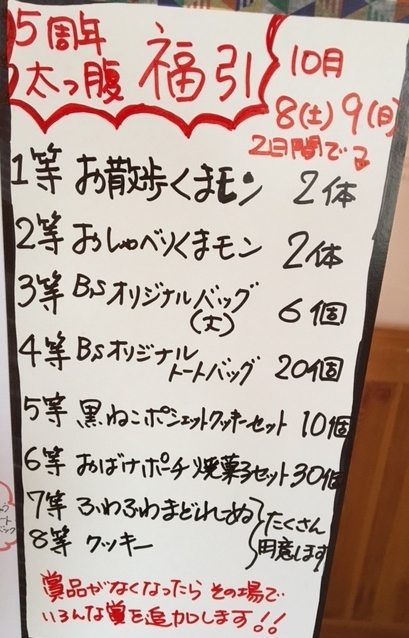 5周年
太っ腹 福引
10月
8(土)9(日)
2日間で
1等 お散歩くまモン 2体
2等 おしゃべりくまモン 2体
3等 BSオリジナルバッグ(大) 6個
4等 BSオリジナルトートバッグ 20個
5等 黒ねこポシェットクッキーセット 10個
6等 おばけポーチ焼菓子セット 30個
7等 ふわふわまどれーぬ
8等 クッキー
たくさん
用意します
賞品がなくなったら その場で
いろんな賞を追加します!!